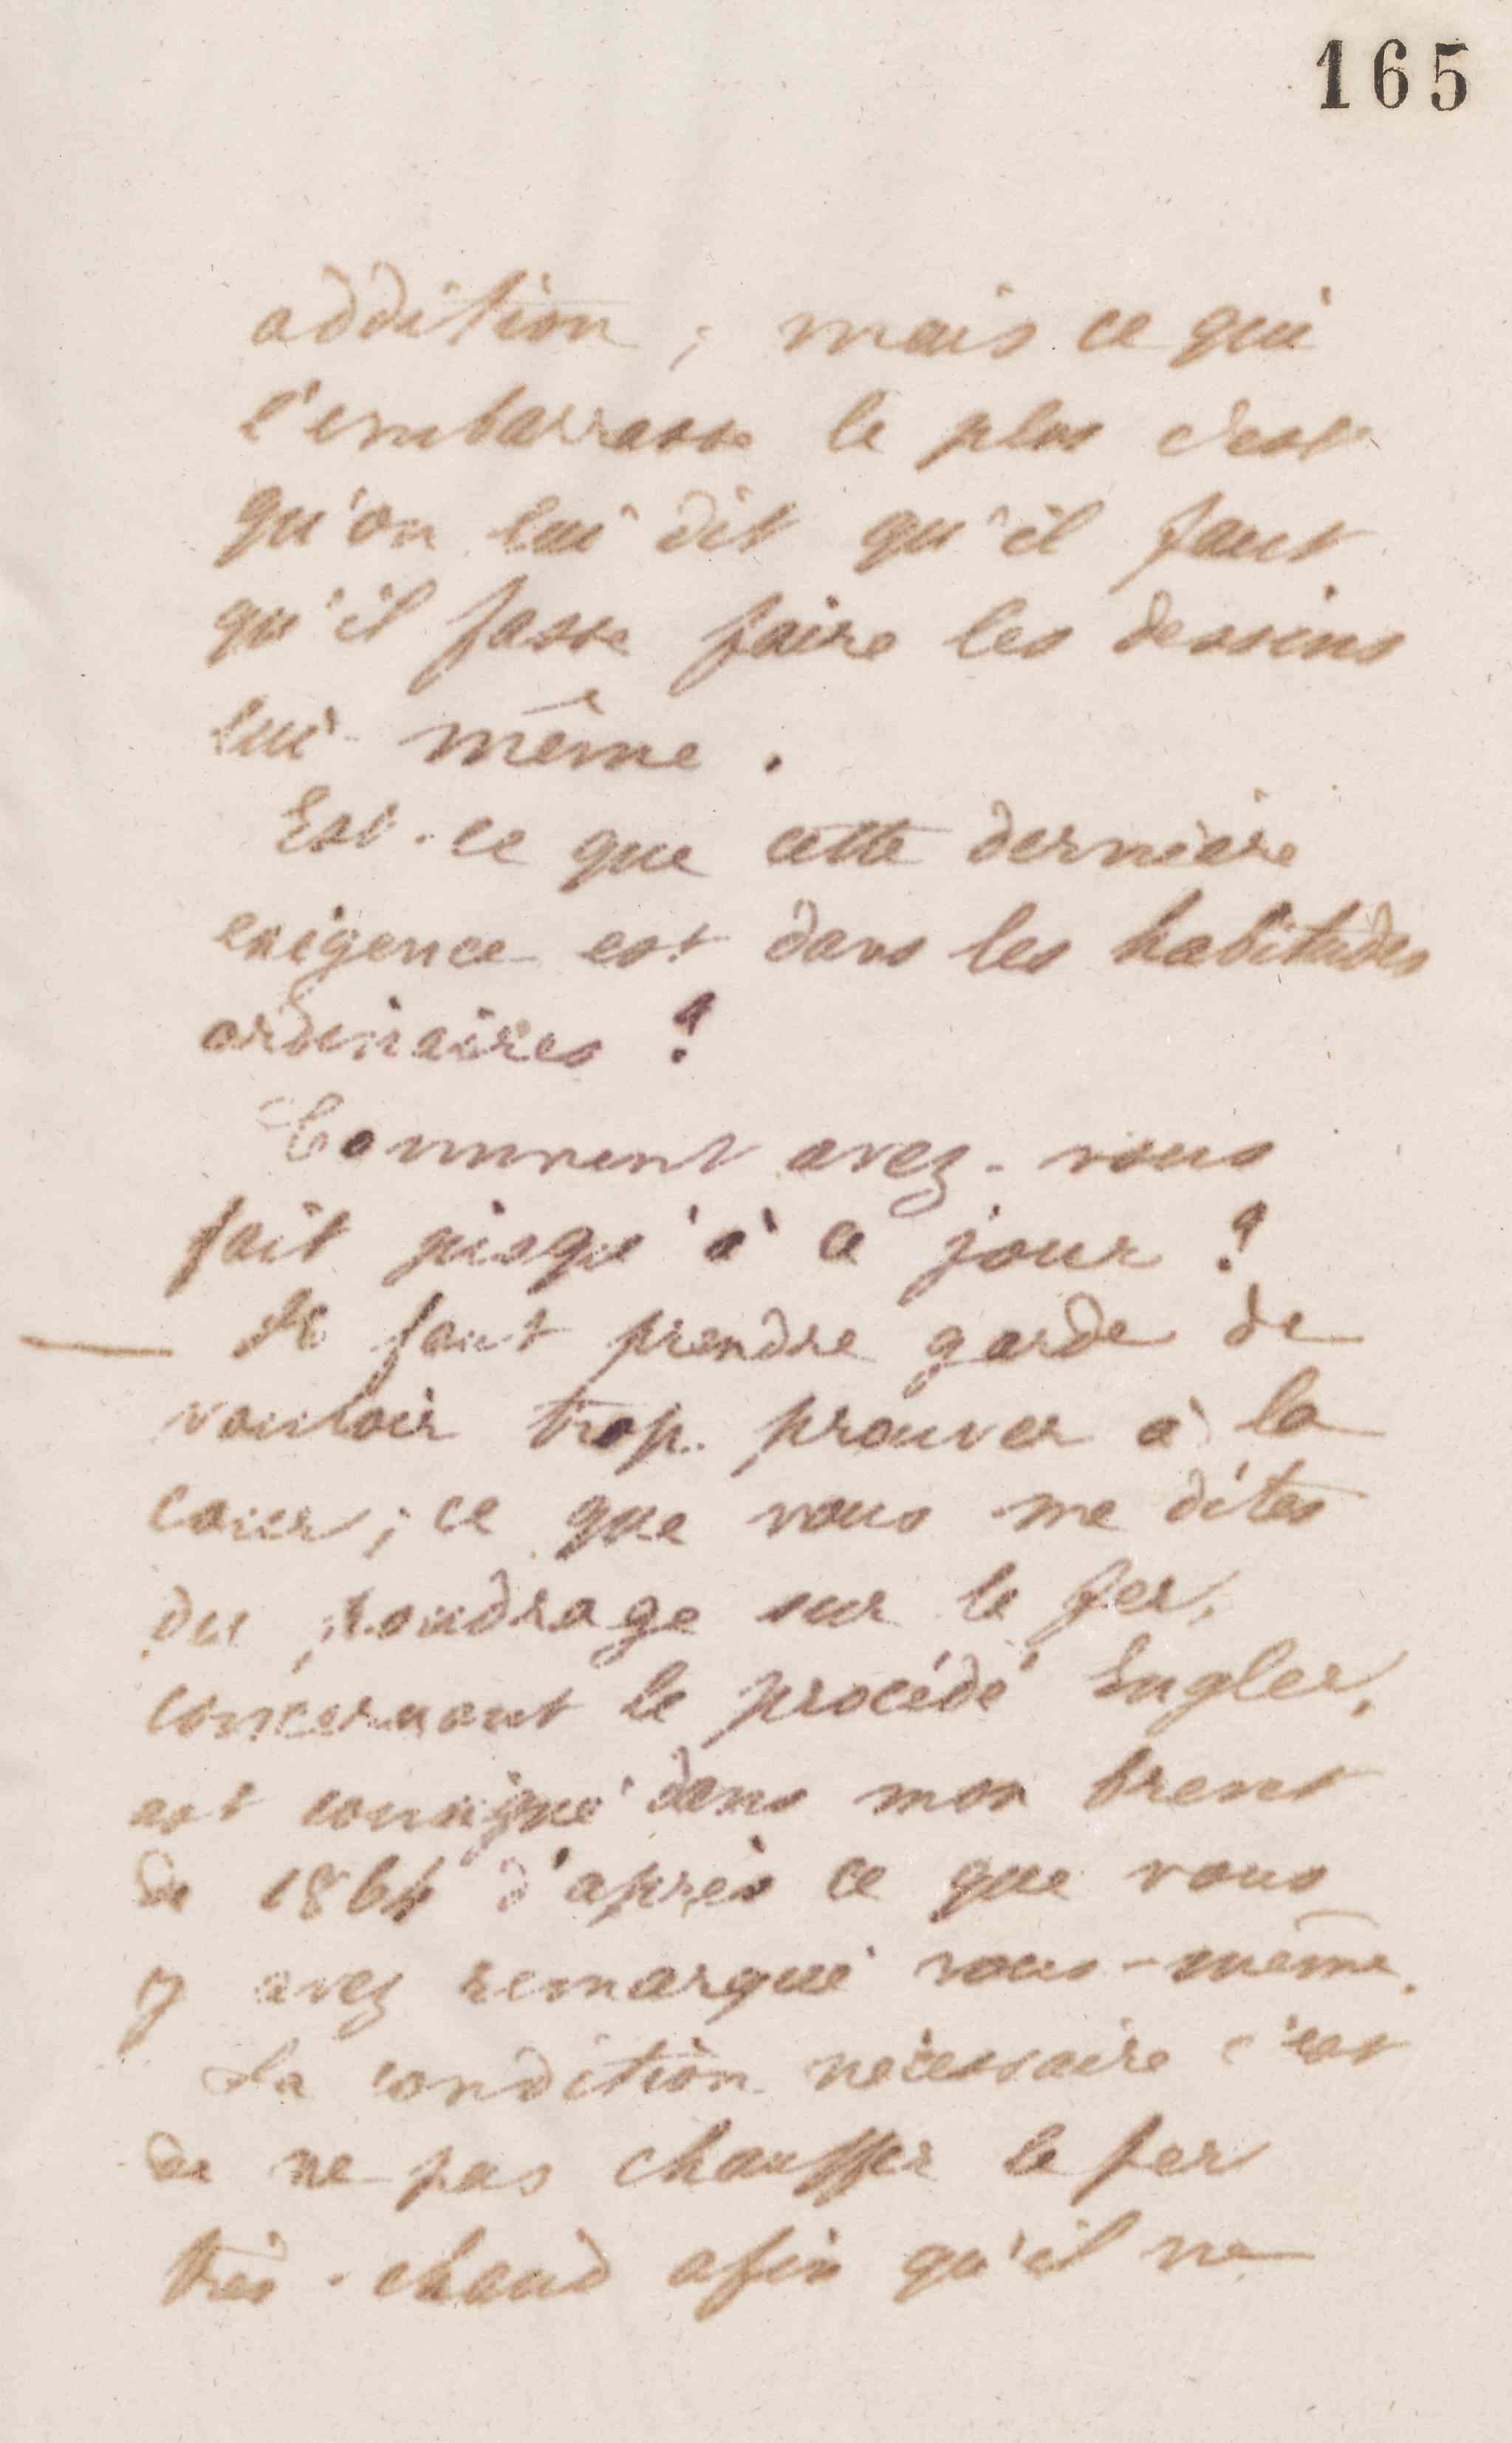 165
addition ; mais ce qui
l'embarrasse le plus c'est
qu'on lui dit qu'il faut
qu'il fasse faire les dessins
lui-même.
Est-ce que cette dernière
exigence est dans les habitudes
ordinaires ?
Comment avez-vous
fait jusqu'à ce jour ?
— Il faut prendre garde de
vouloir trop prouver à la
cour ; ce que vous me dites
du poudrage sur le fer,
concernant le procédé Engler,
est consigné dans mon brevet
de 1864 d'après ce que vous
y avez remarqué vous-même.
La condition nécessaire c'est
de ne pas chauffer le fer
très-chaud afin qu'il ne